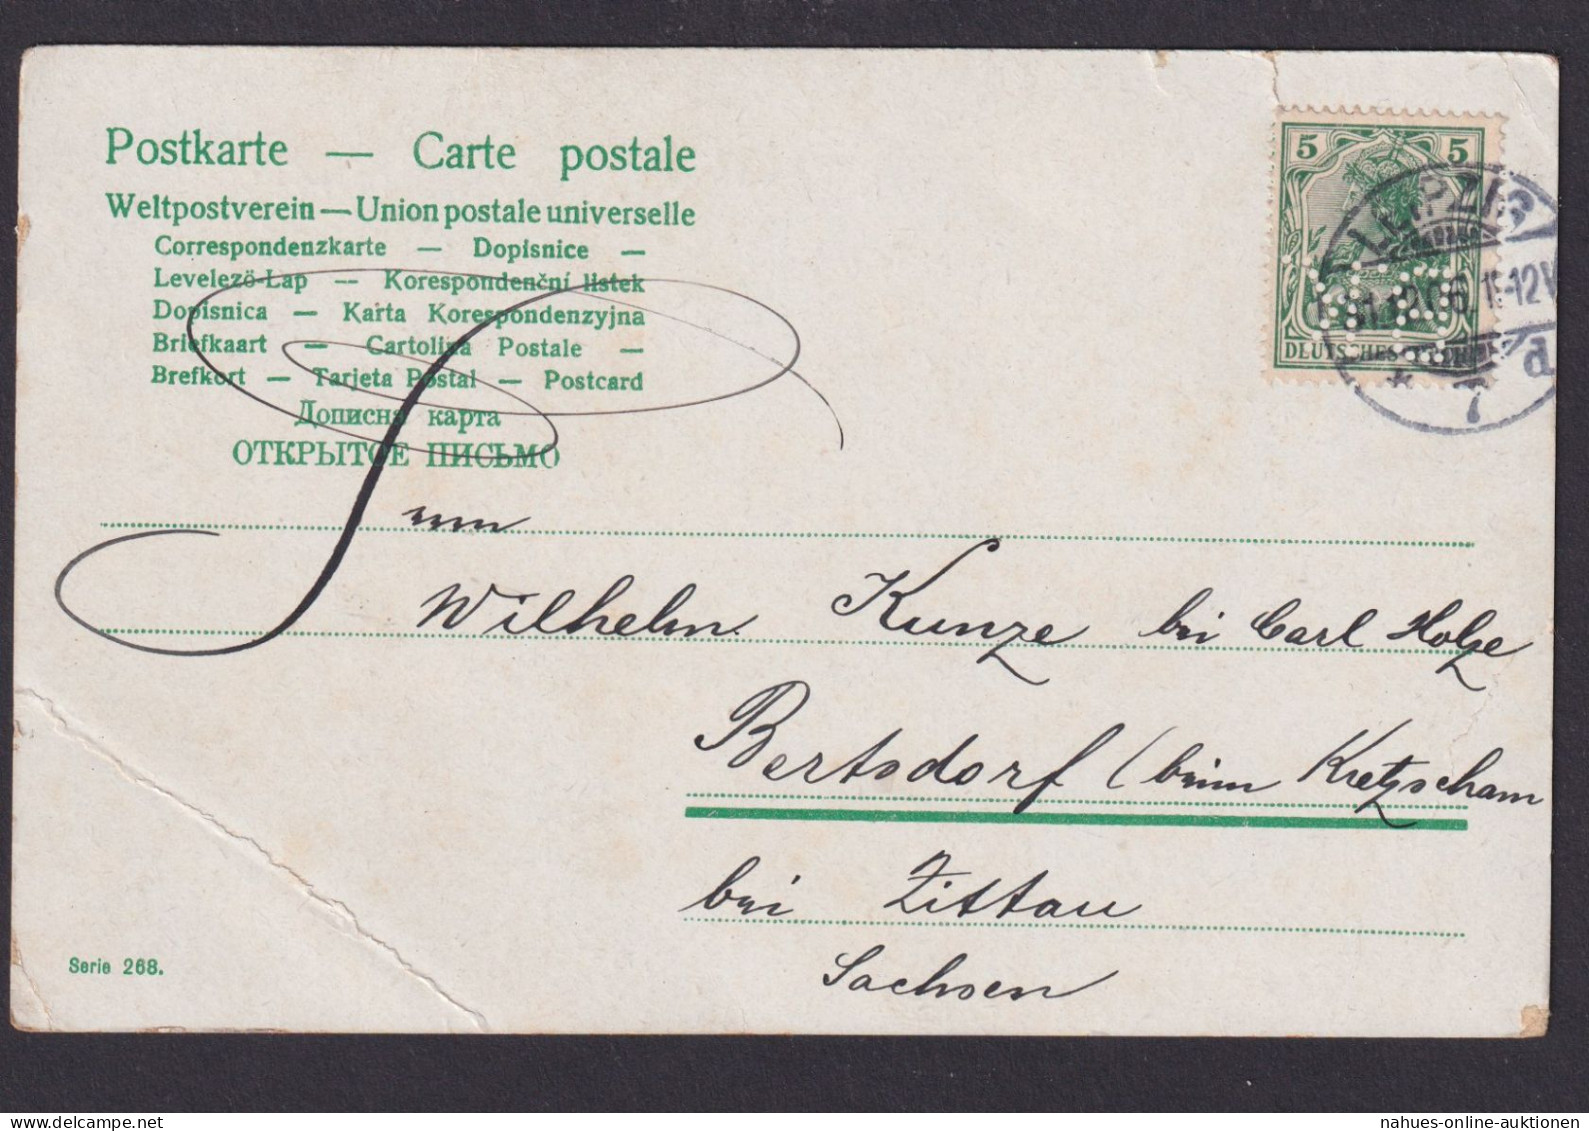 Postkarte — Carte postale
Weltpostverein — Union postale universelle
Correspondenzkarte — Dopisnice —
Levelezö-Lap — Korespondenční lístek
Dopisnica — Karta Korespondenzyjna
Briefkaart — Cartolina Postale —
Brefkort — Tarjeta Postal — Postcard
Дописна карта
ОТКРЫТОЕ ПИСЬМО
5 5
LEIPZIG
31.12.06. 11-12V
DEUTSCHES
* 7 d
Wilhelm Kunze bei Carl Holze
Bertsdorf (beim Kretzscham
bei Zittau
Sachsen
Serie 268.
nahues-online-auktionen